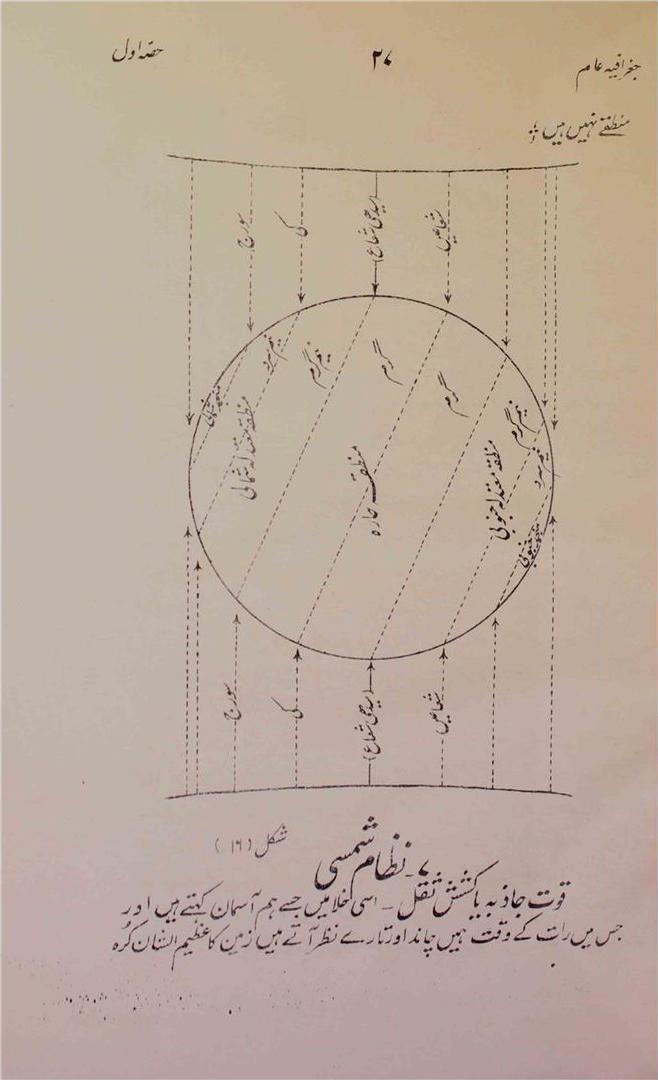 جغرافیہ عام
۲۷
حصہ اول
منطقے نہیں ہیں
سورج
کی
(سیدھی شعاع)
شعاعیں
منجمد شمالی
نیم سرد
نیم گرم
گرم
گرم
نیم گرم
نیم سرد
منطقہ معتدلہ شمالی
منطقہ حارہ
منطقہ معتدلہ جنوبی
منجمد جنوبی
سورج
کی
(سیدھی شعاع)
شعاعیں
شکل (۱۶)
۷۔ نظام شمسی
قوت جاذبہ یا کشش ثقل ۔ اسی خلا میں جسے ہم آسمان کہتے ہیں اور
جس میں رات کے وقت ہمیں چاند اور تارے نظر آتے ہیں زمین کا عظیم الشان کرہ